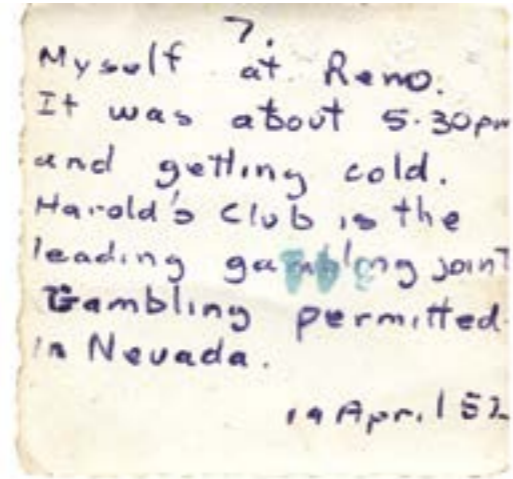 7.
Myself at Reno.
It was about 5.30pm
and getting cold.
Harold's Club is the
leading gambling joint
Gambling permitted.
in Nevada.
19 April 52